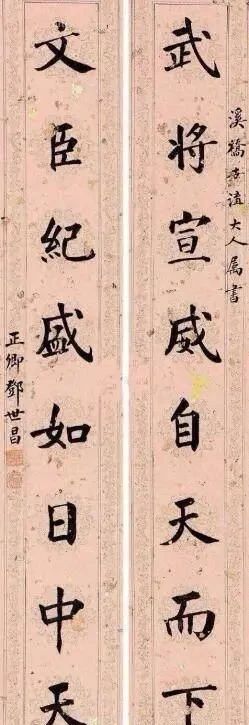 溪橋古滇大人属書
武將宣威自天而下
文臣紀盛如日中天
正卿鄧世昌